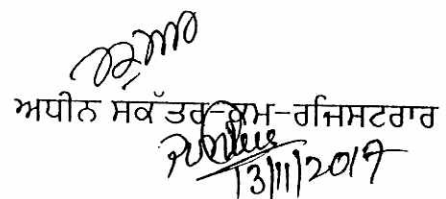 ਅਧੀਨ ਸਕੱਤਰ-ਕਮ-ਰਜਿਸਟਰਾਰ
13/11/2017